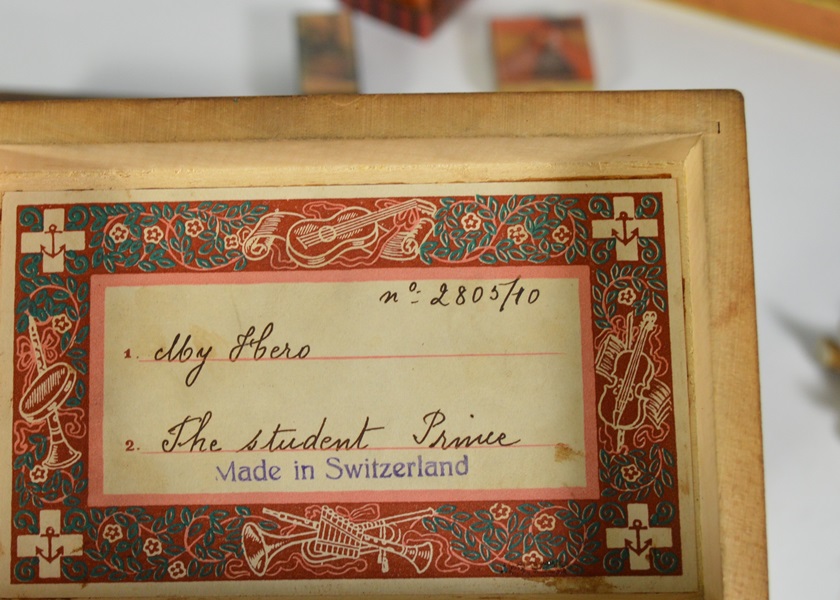 nº 2805/10
1. My Hero
2. The student Prince
Made in Switzerland